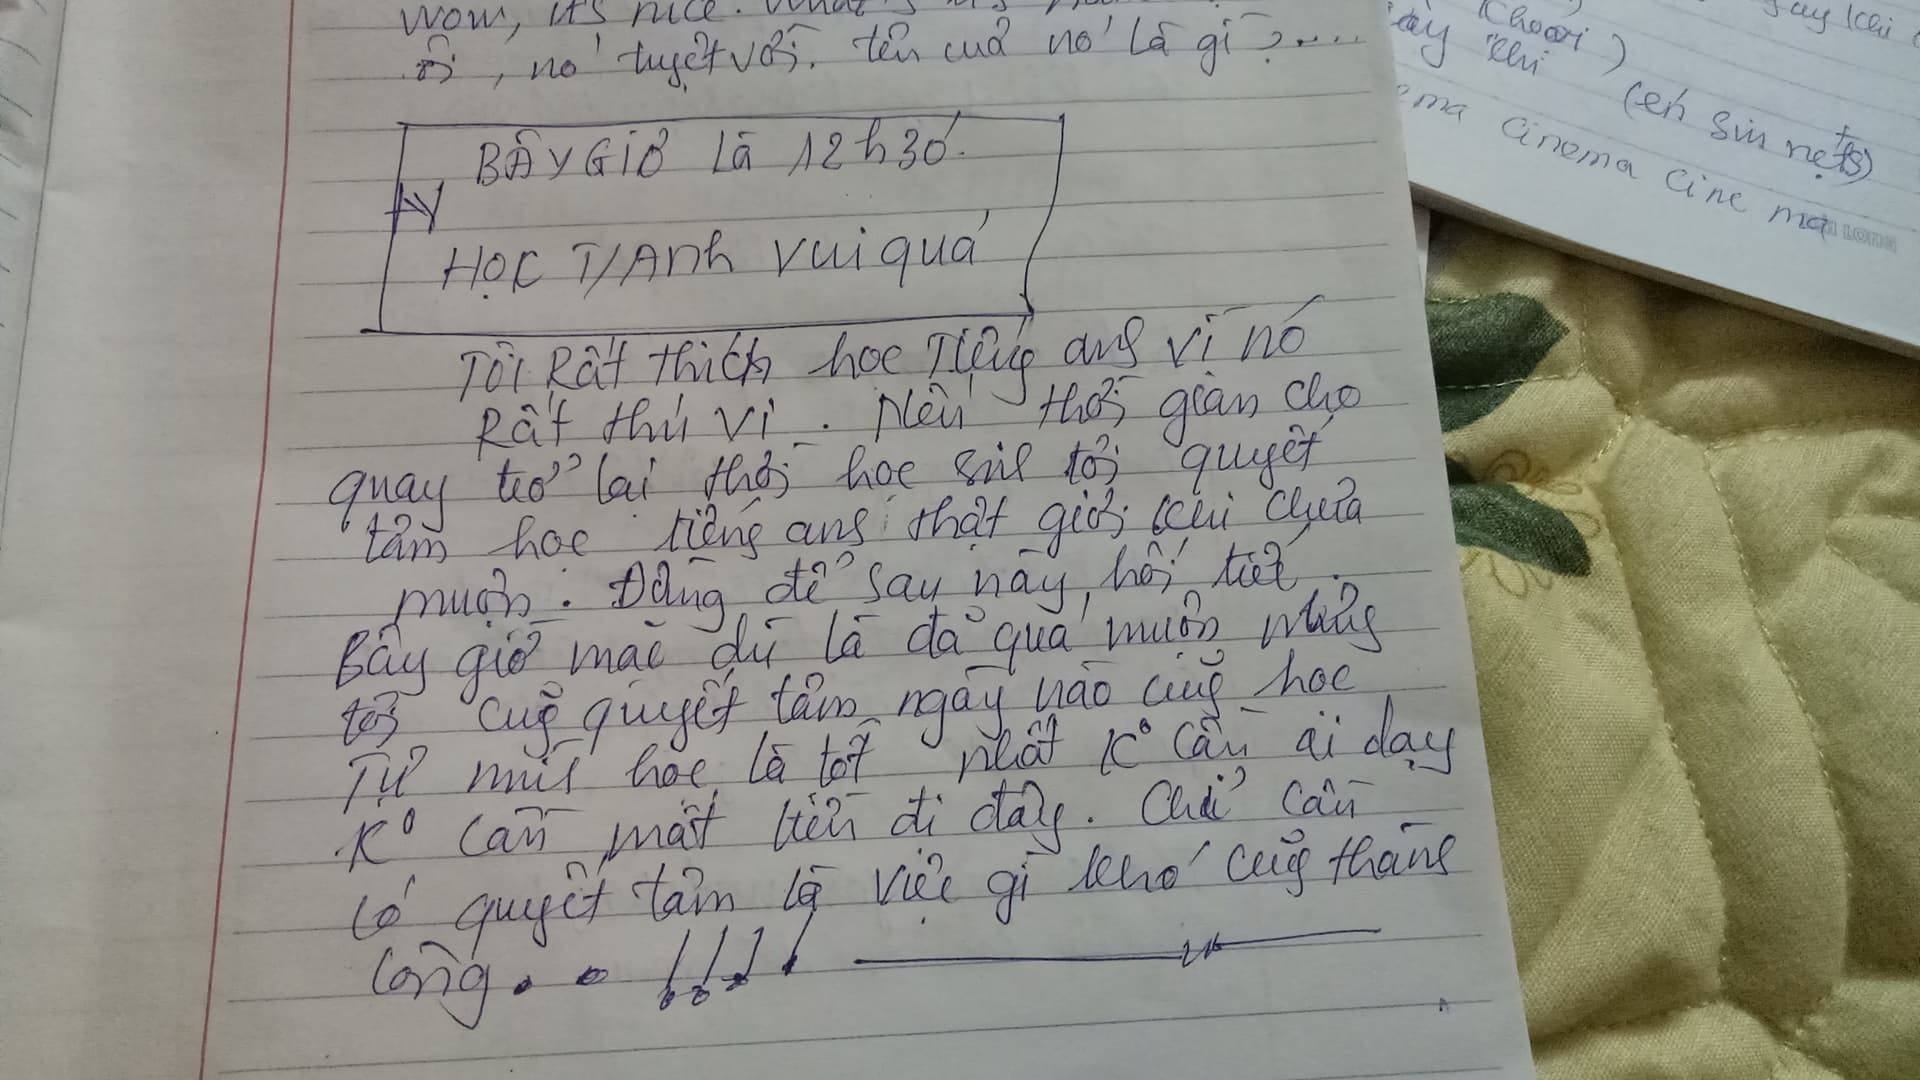 wow, it's nice. What's
ồ, nó tuyệt vời. tên cuả nó là gì?....
BÂY GIỜ là 12h30.
HỌC T/Anh vui quá
Tôi Rất thích học Tiếng anh vì nó
Rất thú vị. Nếu thời gian cho
quay trở lại thời học sinh tôi quyết
tâm học tiếng anh thật giỏi khi chưa
muộn. Đừng để sau này, hối tiếc.
Bây giờ mặc dù là đã quá muộn nhưng
tôi cũg quyết tâm ngày nào cũg học
Tự mình học là tốt nhất K° cần ai dạy
K° cần mất tiền đi đây. Chỉ cần
có quyết tâm là việc gì khó cũg thàng
công. . !!!!
Khoơi)
khi
(eh sin nets)
ma cinema cine ma